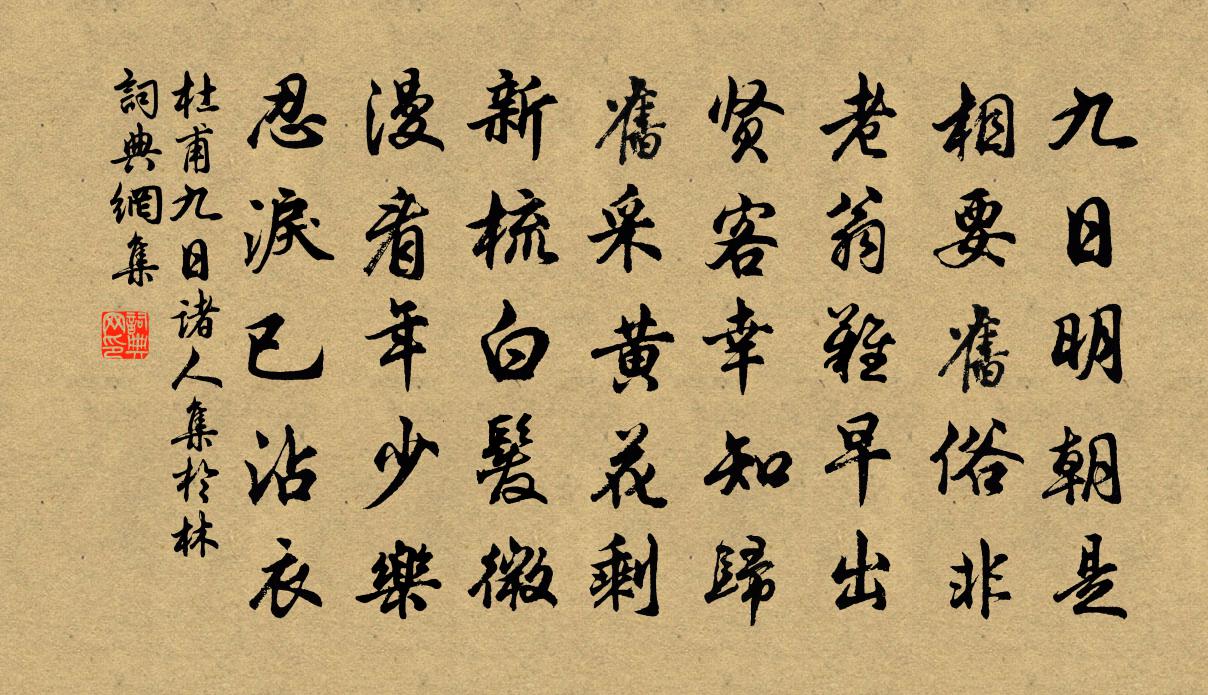 九日明朝是
相要舊俗非
老翁難早出
贤客幸知歸
舊采黄花剩
新梳白髮微
漫看年少樂
忍淚已沾衣
杜甫九日诸人集於林
詞典網集
詞典网印